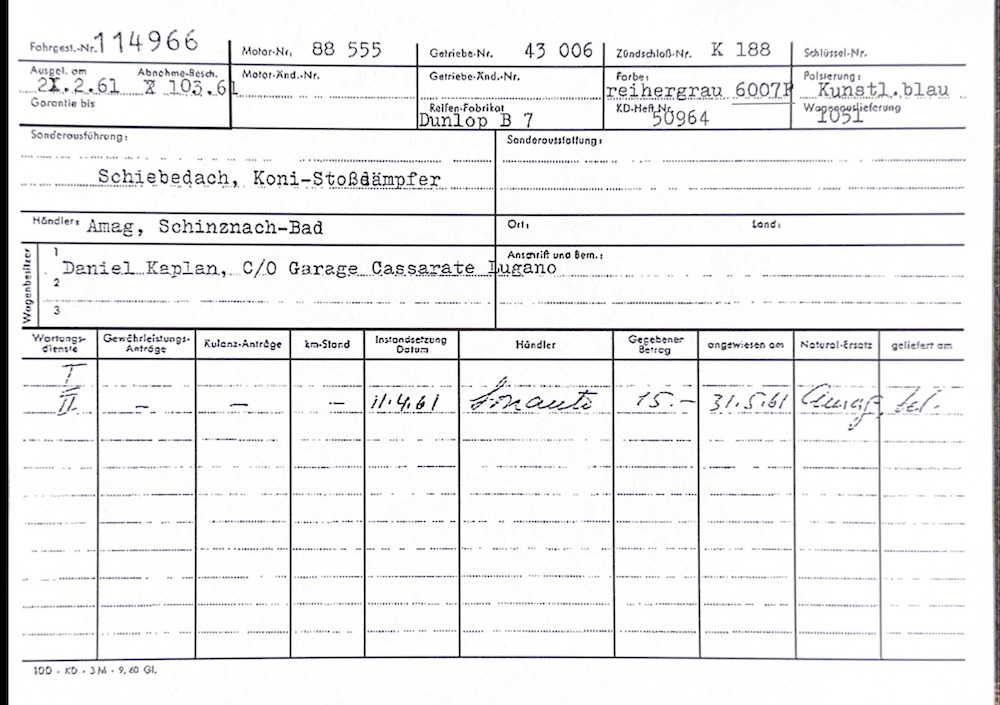 Fahrgest.-Nr. 114966 Motor-Nr. 88 555 Getriebe-Nr. 43 006 Zündschloß-Nr. K 188 Schlüssel-Nr.
Ausgel. am Abnahme-Besch. Motor-Änd.-Nr. Getriebe-Änd.-Nr. Farbe: Polsterung:
.2.61 103.61 reihergrau 6007 Kunstl.blau
Garantie bis Reifen-Fabrikat KD-Heft Nr. Wagenauslieferung
Dunlop B 7 50964 1051
Sonderausführung: Sonderausstattung:
Schiebedach, Koni-Stoßdämpfer
Händler: Amag, Schinznach-Bad Ort: Land:
Wagenbesitzer 1 Anschrift und Bem.:
Daniel Kaplan, C/O Garage Cassarate Lugano
2
3
Wartungs-dienste Gewährleistungs-Anträge Kulanz-Anträge km-Stand Instandsetzung Datum Händler Gegebener Betrag angewiesen am Natural-Ersatz geliefert am
I
II. – – – 11.4.61 15.- 31.5.61 Amag, tel.
100 - KD - 3 M - 9. 60 Gl.